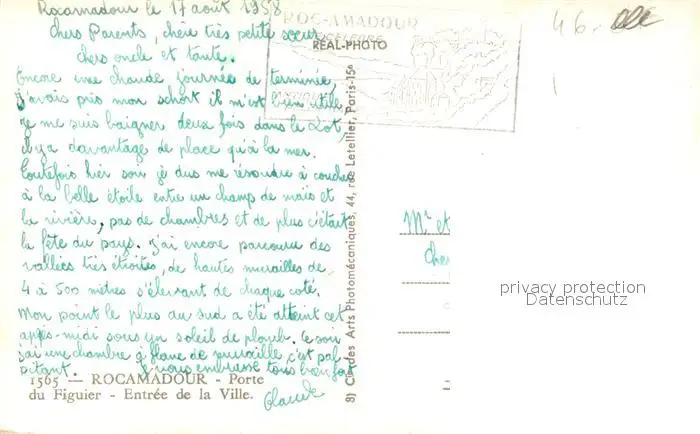 Rocamadour le 17 août 1958
chers Parents, chère très petite sœur
chers oncle et tante.
Encore une chaude journée de terminée,
j'avais pris mon schort il m'est bien utile
je me suis baigner deux fois dans le Lot,
il y a davantage de place qu'à la mer.
Toutefois hier soir je dus me résoudre à coucher
à la belle étoile entre un champ de maïs et
la rivière, pas de chambres et de plus c'était
la fête du pays. J'ai encore parcouru des
vallées très étroites, de hautes murailles de
4 à 500 mètres s'élevant de chaque coté.
Mon point le plus au sud a été atteint cet
après-midi sous un soleil de plomb. Ce soir
j'ai une chambre à flanc de muraille c'est pal
pitant. Je vous embrasse tous bien fort
Claude
1565 — ROCAMADOUR - Porte
du Figuier - Entrée de la Ville.
ROC-AMADOUR
REAL-PHOTO
8) Cie des Arts Photomécaniques, 44, rue Letellier, Paris-15e
46.
Mr et
Cher
privacy protection
Datenschutz